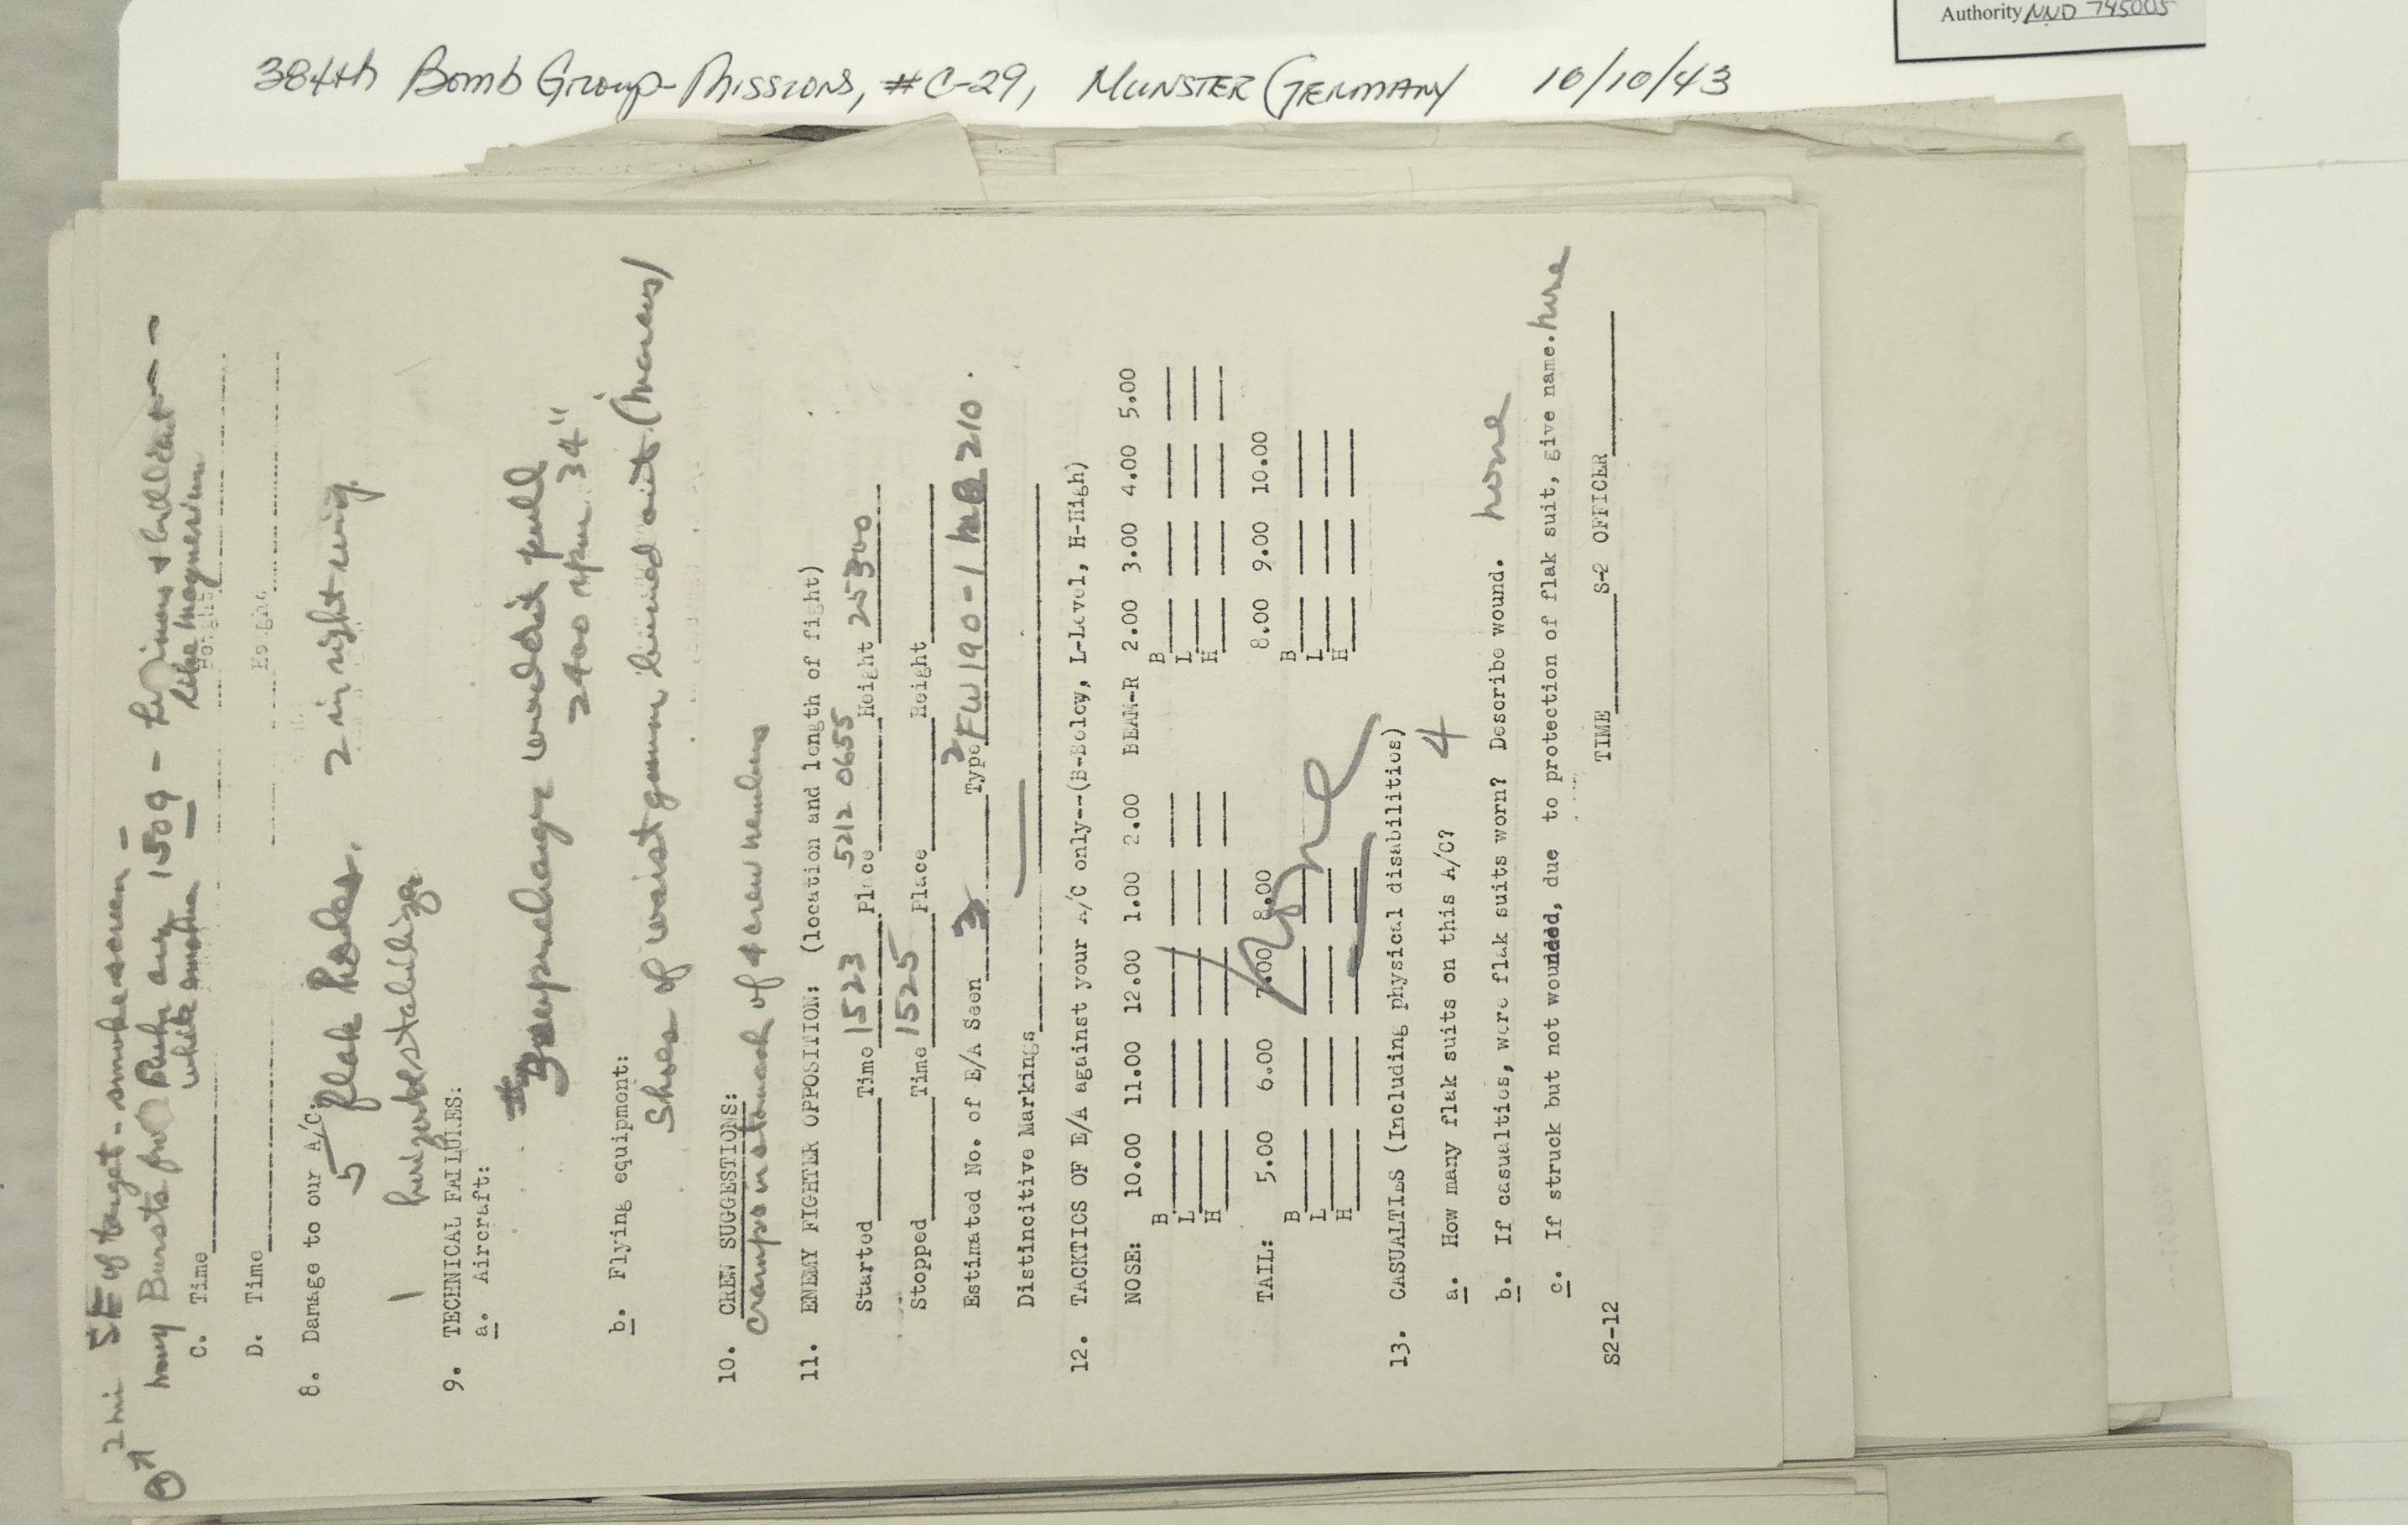 Authority NND 745005
384th Bomb Group-Missions, #C-29, MUNSTER GERMANY 10/10/43
2 mi SE of target - smoke screen -
many Bursts from Ruhr any 1509 - luminous + brilliant -
white smoke like magnesium
C. Time Height
D. Time Height
8. Damage to our A/C.
5 flak holes. 2 in right wing.
1 horizontal stabilizer
9. TECHNICAL FAILURES:
a. Aircraft:
#3 supercharger wouldn't pull
2400 rpm 34"
b. Flying equipment:
Shoes of waist gunner burned out.
10. CREW SUGGESTIONS:
cramps in stomach of 4 crew members
11. ENEMY FIGHTER OPPOSITION: (location and length of fight)
Started Time 1523 Place 5212 0655 Height 25300
Stopped Time 1525 Place Height
Estimated No. of E/A Seen 3 Type 2 FW190-1 ME 210.
Distincitive Markings
12. TACKTICS OF E/A against your A/C only--(B-Below, L-Level, H-High)
NOSE: 10.00 11.00 12.00 1.00 2.00 BEAM-R 2.00 3.00 4.00 5.00
B B
L L
H H
TAIL: 5.00 6.00 7.00 8.00 8.00 9.00 10.00
B B
L L
H H
None
13. CASUALTIES (Including physical disabilities)
a. How many flak suits on this A/C? 4
b. If casualties, were flak suits worn? Describe wound. none
c. If struck but not wounded, due to protection of flak suit, give name. none
TIME S-2 OFFICER
S2-12